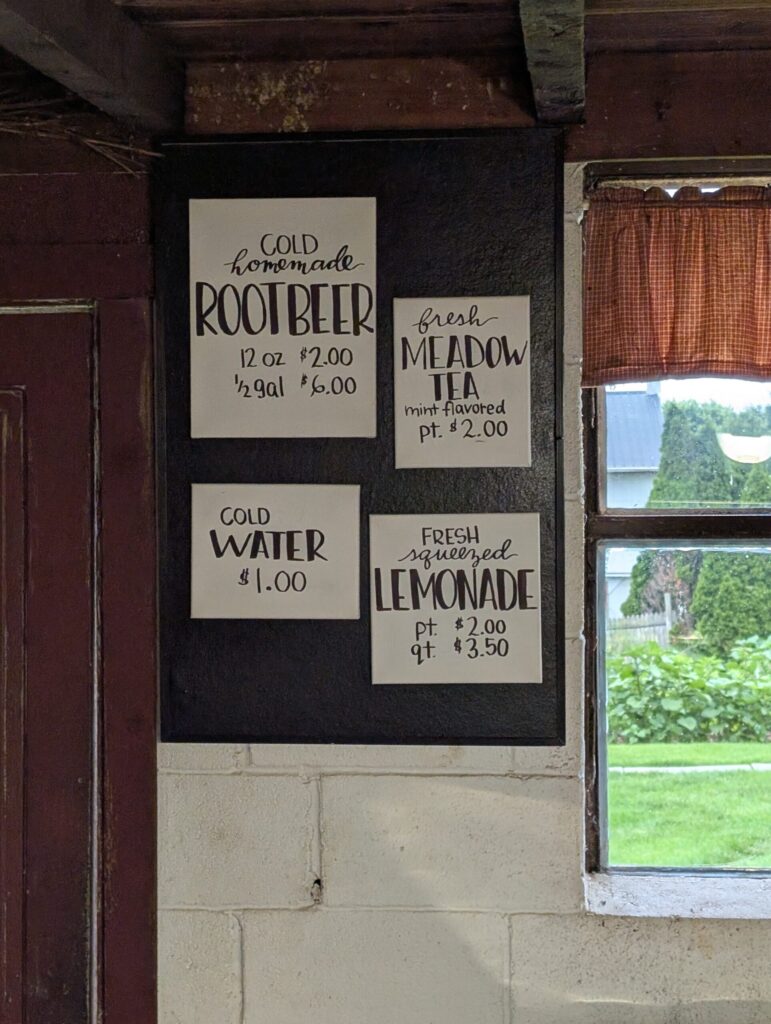 COLD
homemade
ROOTBEER
12 oz $2.00
1/2 gal $6.00
fresh
MEADOW
TEA
mint flavored
pt. $2.00
COLD
WATER
$1.00
FRESH
squeezed
LEMONADE
pt. $2.00
qt. $3.50